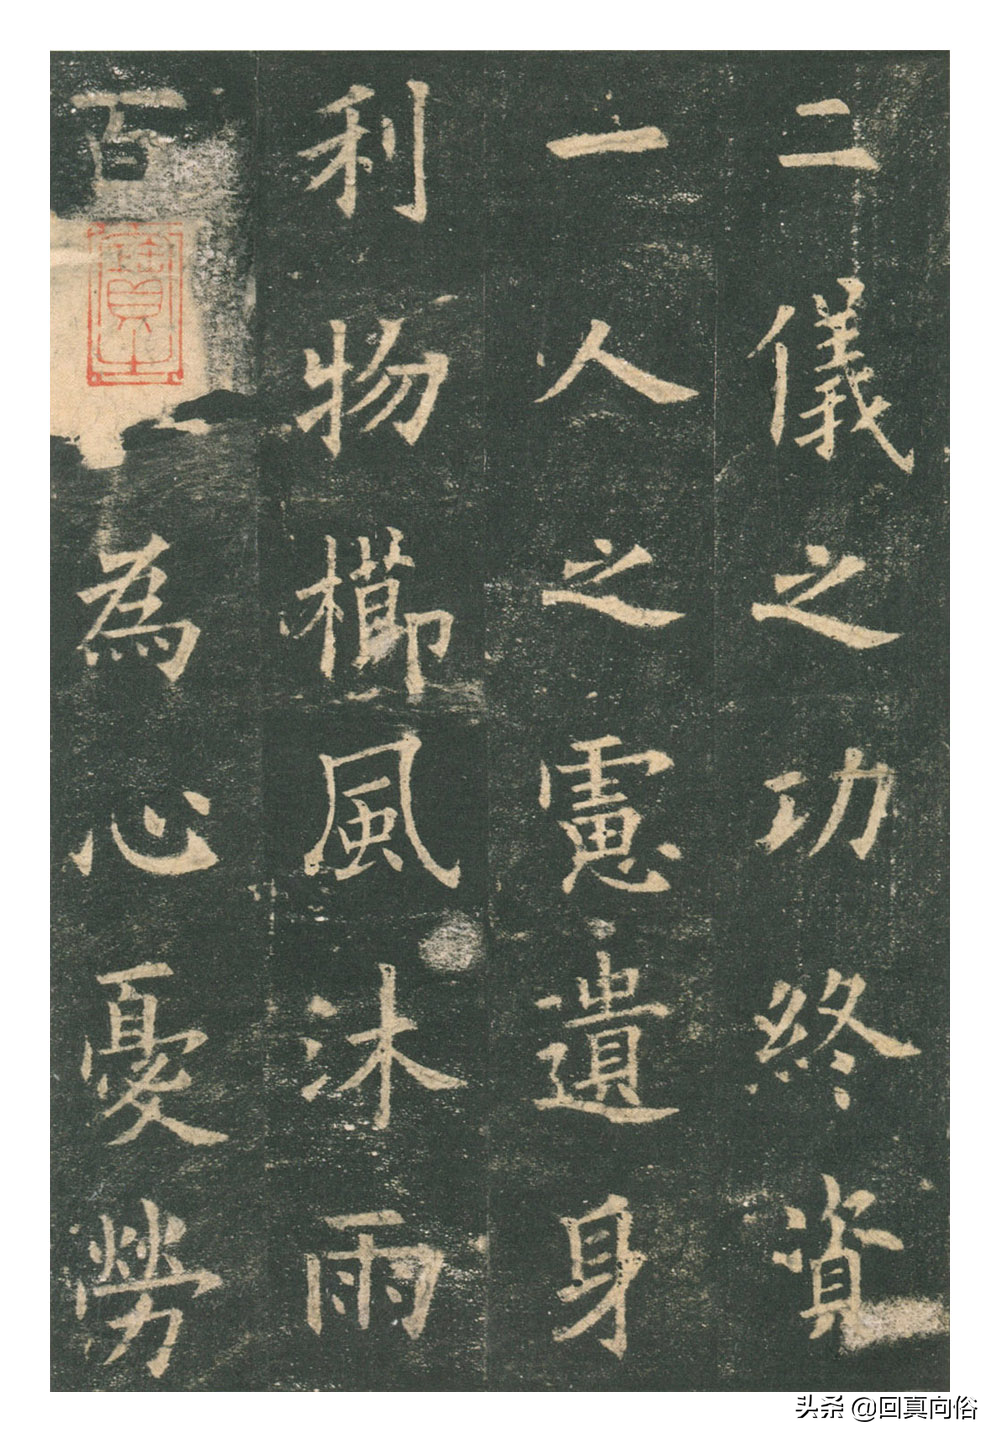 二儀之功終資
一人之慮遺身
利物櫛風沐雨
百為心憂勞
头条 @回真向俗